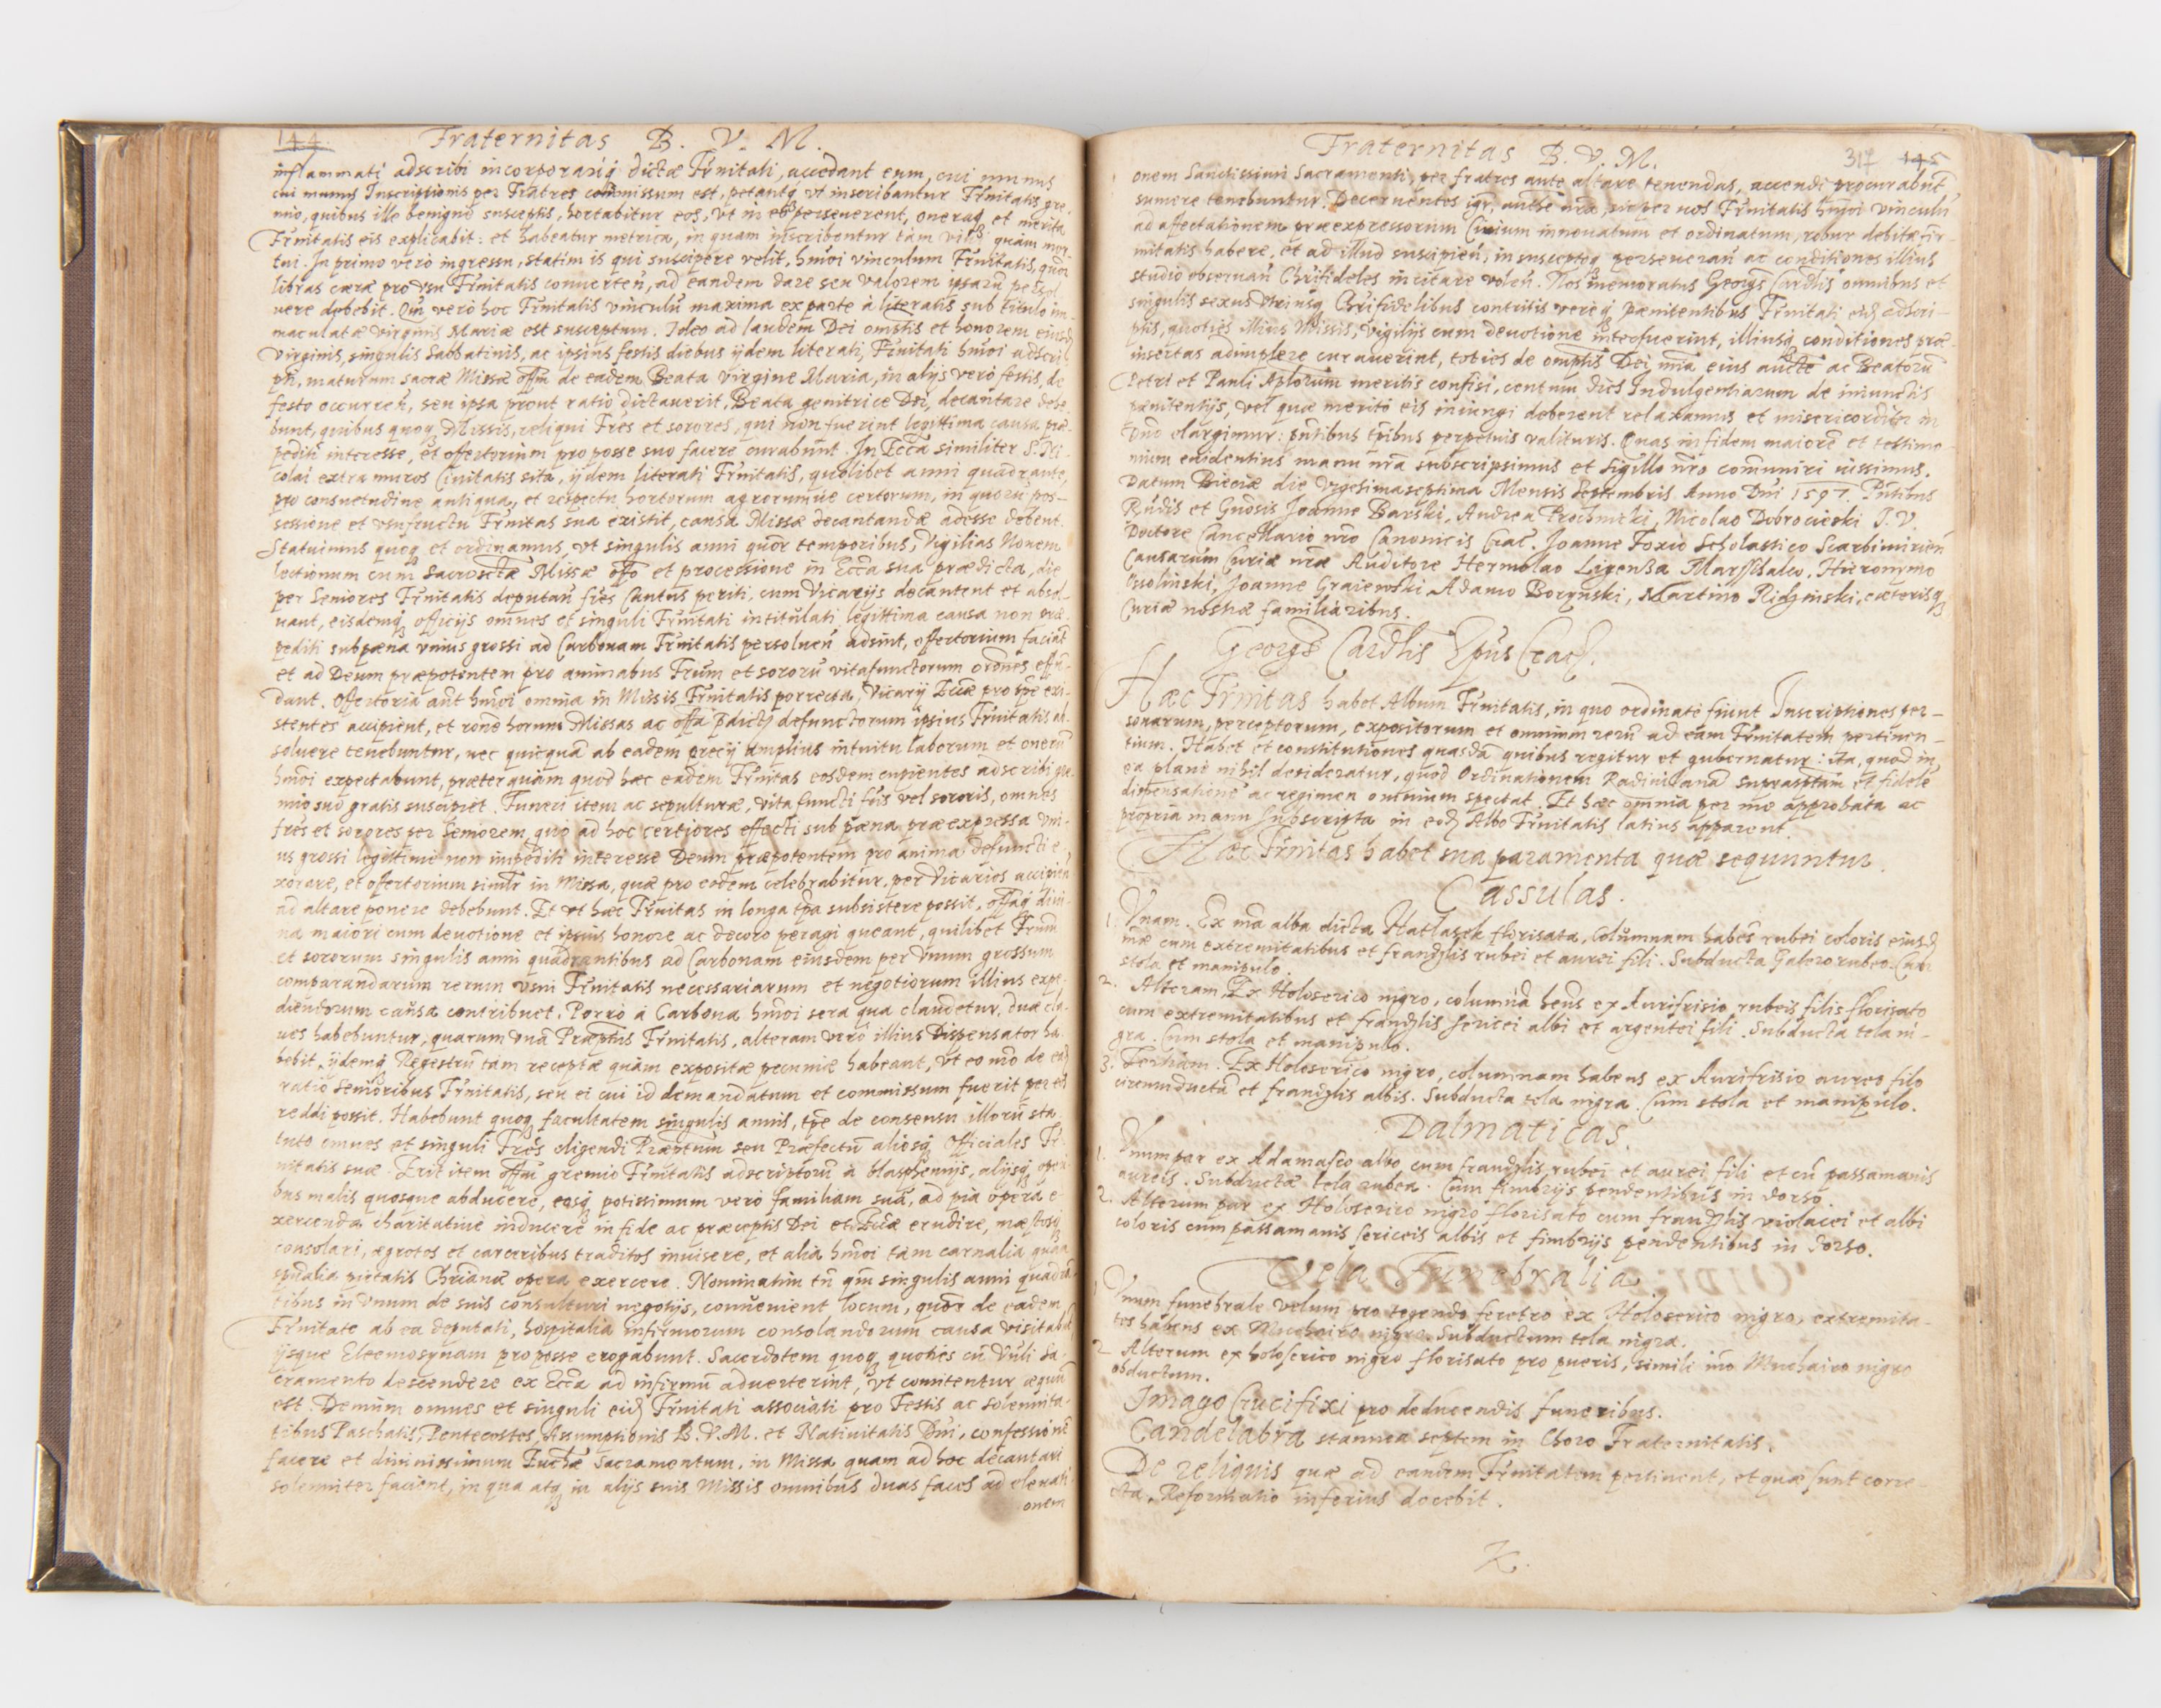 144.
Fraternitas B. V. M.
inflammati adscribi incorporariq; dictæ Frnitati, accedant eum, cui munus
cui munus Inscriptionis per Fratres commissum est, petantq; vt inscribantur Frnitatis gre-
mio, quibus ille benigne susceptis, hortabitur eos, vt in eo perseuerent, oneraq; et merita
Frnitatis eis explicabit: et habeatur metrica, in quam inscribentur tàm viui quàm mor-
tui. In primo verò ingressu, statim is qui suscipere velit, hmoi vinculum Frnitatis,
libras ceræ pro vsu Frnitatis conuerteñ, ad eandem dare seu valorem ipsarū
uere debebit. Qm̄ verò hoc Frnitatis vinculū maxima ex parte à literatis sub titulo im-
maculatæ virginis Mariæ est susceptum. Ideo ad laudem Dei omñtis et honorem eiusd
Virginis, singulis Sabbatinis, ac ipsius festis diebus ijdem literati, Frnitati hmoi adscri-
pti, maturum sacræ Missæ offm de eadem Beata Virgine Maria, in alijs verò festis, de
festo occurreñ, seu ipsa prout ratio dictauerit, Beata genitrice Dei, decantare debe-
bunt, quibus quoq; Missis, reliqui Frēs et sorores, qui non fuerint legittima causa præ-
pediti interesse, et offertorium pro posse suo facere curabunt. In Eccā similiter S. Ni-
colai extra muros Ciuitatis sita, ijdem literati Frnitatis, quolibet anni quadrante,
pro consuetudine antiqua, et respectu hortorum agrorumue certorum, in quorū pos-
sessione et vsufructu Frnitas sua existit, causa Missæ decantandæ adesse debent.
Statuimus quoq; et ordinamus, vt singulis anni quor temporibus, Vigilias Nouem
lectionum cum sacrosctæ Missæ offo et processione in Eccā sua prædicta, die
per Seniores Frnitatis deputañ frēs Cantus periti, cum Vicarijs decantent et absol-
uant, eisdemq; officijs omnes et singuli Frnitati intitulati legittima causa non præ-
pediti sub pæna vnius grossi ad Carbonam Frnitatis persolueñ adsint, offertorium faciāt
et ad Deum præpotentem pro animabus Frum et sororū vita functorum orōnes effū-
dant. Offertoria aūt hmoi omnia in Missis Frnitatis porrecta, Vicarij Eccæ pro tpe exi-
stentes accipient, et rone horum Missas ac offa pdictȝ defunctorum ipsius Frnitatis ab-
soluere tenebuntur, nec quicquā ab eadem precij amplius intuitu laborum et onerū
hmoi expectabunt, præterquàm quod hæc eadem Frnitas eosdem cupientes adscribi gre-
mio suo gratis suscipiet. Funeri item ac sepulturæ, vita functi fris vel sororis, omnes
frēs et sorores per Seniorem, quo ad hoc certiores effecti sub pæna præexpressa vni-
us grossi legittimè non impediti interesse Deum præpotentem pro anima defuncti e-
xorare, et offertorium simlr in Missa, quæ pro eodem celebrabitur, per Vicarios accipien
ad altare ponere debebunt. Et vt hæc Frnitas in longa tpa subsistere possit, offaq; diui-
na maiori cum deuotione et ipsius honore ac decoro peragi queant, quilibet Frum
et sororum singulis anni quadrantibus ad Carbonam eiusdem per vnum grossum
comparandarum rerum vsui Frnitatis necessariarum et negotiorum illius expe-
diendorum causa contribuet. Porrò à Carbona hmoi sera qua claudetur, duæ cla-
ues habebuntur, quarum vnā Præptus Frnitatis, alteram verò illius Dispensator ha-
bebit, ijdemq; Regestrū tàm receptæ quàm expositæ pecuniæ habeant, vt eo mō de ead
ratio Senioribus Frnitatis, seu ei cui id demandatum et commissum fuerit per eos
reddi possit. Habebunt quoq; facultatem singulis annis, tpe de consensu illorū sta-
tuto omnes et singuli Frēs eligendi Præptum seu Præfectū aliosq; Officiales Fr-
nitatis suæ. Erit item offm gremio Frnitatis adscriptorū à blasphemijs, alijsq; operi-
bus malis quosque abducere, eosq; potissimum verò familiam suā, ad pia opera e-
xercenda charitatiuè inducere in fide ac præceptis Dei et Eccæ erudire, mæstosq;
consolari, ægrotos et carceribus traditos inuisere, et alia hmoi tàm carnalia quàm
spūalia pietatis Chrianæ opera exercere. Nominatim tñ qm singulis anni quadrā-
tibus in vnum de suis consulturi negotijs, conuenient locum, quor de eadem
Frnitate ab ea deputati, hospitalia infirmorum consolandorum causa visitabū
ijsque Eleemosynam pro posse erogabunt. Sacerdotem quoq; quoties cū Viuli Sa-
cramento descendere ex Eccā ad infirmū aduerterint, vt comitentur æquū
est. Demùm omnes et singuli eidȝ Frnitati associati pro Festis ac solennita-
tibus Paschatis, Pentecostes, Assumptionis B.V.M. et Natiuitatis Dni, confessionē
facere et diuinissimum Euchæ Sacramentum, in Missa quam ad hoc decantari
solenniter facient, in qua atq; in alijs suis Missis omnibus duas faces ad eleuati
onem
Fraternitas B. V. M.
317 145
onem Sanctissimi Sacramenti, per fratres ante altare tenendas, accendi procurabūt
sumere tenebuntur. Decernentes igr, authe nrā, super nos Frnitatis hmoi vinculū
ad affectationem præexpressorum Ciuium innouatum et ordinatum, robur debitæ fir-
mitatis habere, et ad illud suscipieñ, in susceptoq; perseueran ac conditiones illius
studio obseruañ Chrifideles incitare voleñ. Nos memoratus Georgs Cardlis omnibus et
singulis sexus vtriusq; Chrifidelibus contritis vereq; pænitentibus Frnitati eidȝ adscri-
ptis, quoties illius Missis, Vigilijs cum deuotione interfuerint, illiusq; conditiones præ-
insertas adimplere curauerint, toties de omptis Dei mīa eius aucte ac Beatorū
Petri et Pauli Aplorum meritis confisi, centum dies Indulgentiarum de iniunctis
pænitentijs, vel quæ merito eis iniungi deberent relaxamus et misericorditer in
Dno elargimur: pntibus tpibus perpetuis valituris. Quas in fidem maiorē et testimo-
nium euidentius manu nrā subscripsimus et Sigillo nro comuniri iussimus.
Datum Bieciæ die vigesimaseptima Mensis Septembris Anno Dni 1597. Pntibus
Rndis et Gnosis Joanne Barski, Andrea Trochnicki, Nicolao Dobrocieski J. V.
Doctore Cancellario nro Canonicis Crac. Joanne Foxio Scholastico Scarbimirien
Causarum Curiæ nræ Auditore Hermolao Ligenza Marsschalco, Hieronymo
Ossolinski, Joanne Graiewski Adamo Borzynski, Martino Ridzinski, cæterisq;
Curiæ nostræ familiaribus.
Georgs Cardlis Epus Crac.
Hæc Frnitas habet Album Frnitatis, in quo ordinatè fiunt Inscriptiones per-
sonarum, perceptorum, expositorum et omnium rerū ad eam Frnitatem pertinen-
tium. Habet et constitutiones quasdā quibus regitur et gubernatur: ita, quod in
ea planè nihil desideratur, quod Ordinationem Radiuilianā suprasptam et fidelē
dispensationē ac regimen omnium spectat. Et hæc omnia per me approbata ac
propria manu subscripta in eodȝ Albo Frnitatis latius apparent.
Hæc Frnitas habet sua paramenta quæ sequuntur.
Cassulas.
1. Vnam. Ex mā alba dicta Hatlasek florisata, Columnam habēs rubei coloris eiusdȝ
mæ cum extremitatibus et frandzlis rubei et aurei fili. Subducta Galezo rubeo. Cum
stola et manipulo.
2. Alteram. Ex Holoserico nigro, columnā hens ex Aurifrisio rubeis filis florisato
cum extremitatibus et frandzlis sericei albi et argentei fili. Subducta tela ni-
gra. Cum stola et manipulo.
3. Tertiam. Ex Holoserico nigro, columnam habens ex Aurifrisio aureo filo
circumductā et frandzlis albis. Subducta tela nigra. Cum stola et manipulo.
Dalmaticas.
1. Vnum par ex Adamasco albo cum frandzlis rubei et aurei fili et cū passamanis
aureis. Subductæ tela rubea. Cum fimbrijs pendentibus in dorso.
2. Alterum par ex Holoserico nigro florisato cum frandzlis violacei et albi
coloris cum passamanis sericeis albis et fimbrijs pendentibus in dorso.
Vela Funebralia.
1 Vnum funebrale velum pro tegendo feretro ex Holoserico nigro, extremita-
tes habens ex Muchairo nigro. Subductum tela nigra.
2 Alterum ex holoserico nigro florisato pro pueris, simili mō Muchairo nigro
obductum.
Imago Crucifixi pro deducendis funeribus.
Candelabra stannea septem in Choro Fraternitatis.
De reliquis quæ ad eandem Frnitatem pertinent, et quæ sunt corre
cta, Reformatio inferius docebit.
K.